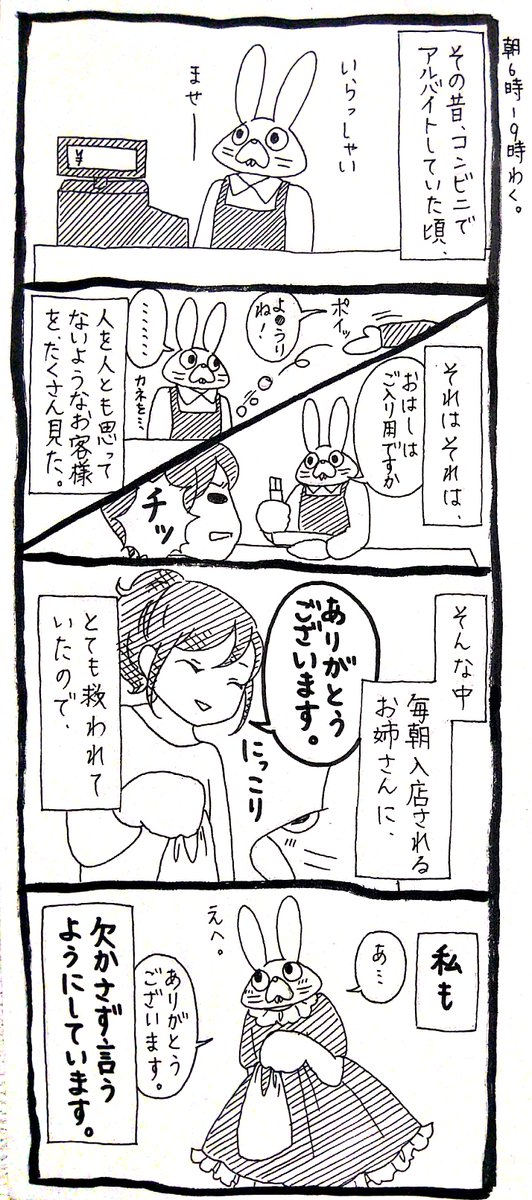 朝6時-9時わく。
その昔、コンビニで
アルバイトしていた頃、
いらっしゃい
ませー
¥
それはそれは、
おはしは
ご入り用ですか
チッ
ポイッ
ね!
‥‥‥
カネを…
人を人とも思って
ないようなお客様
を、たくさん見た。
そんな中
毎朝入店される
お姉さんに、
ありがとう
ございます。
にっこり
とても救われて
いたので、
私も
あ…
えへ。
ありがとう
ございます。
欠かさず言う
ようにしています。